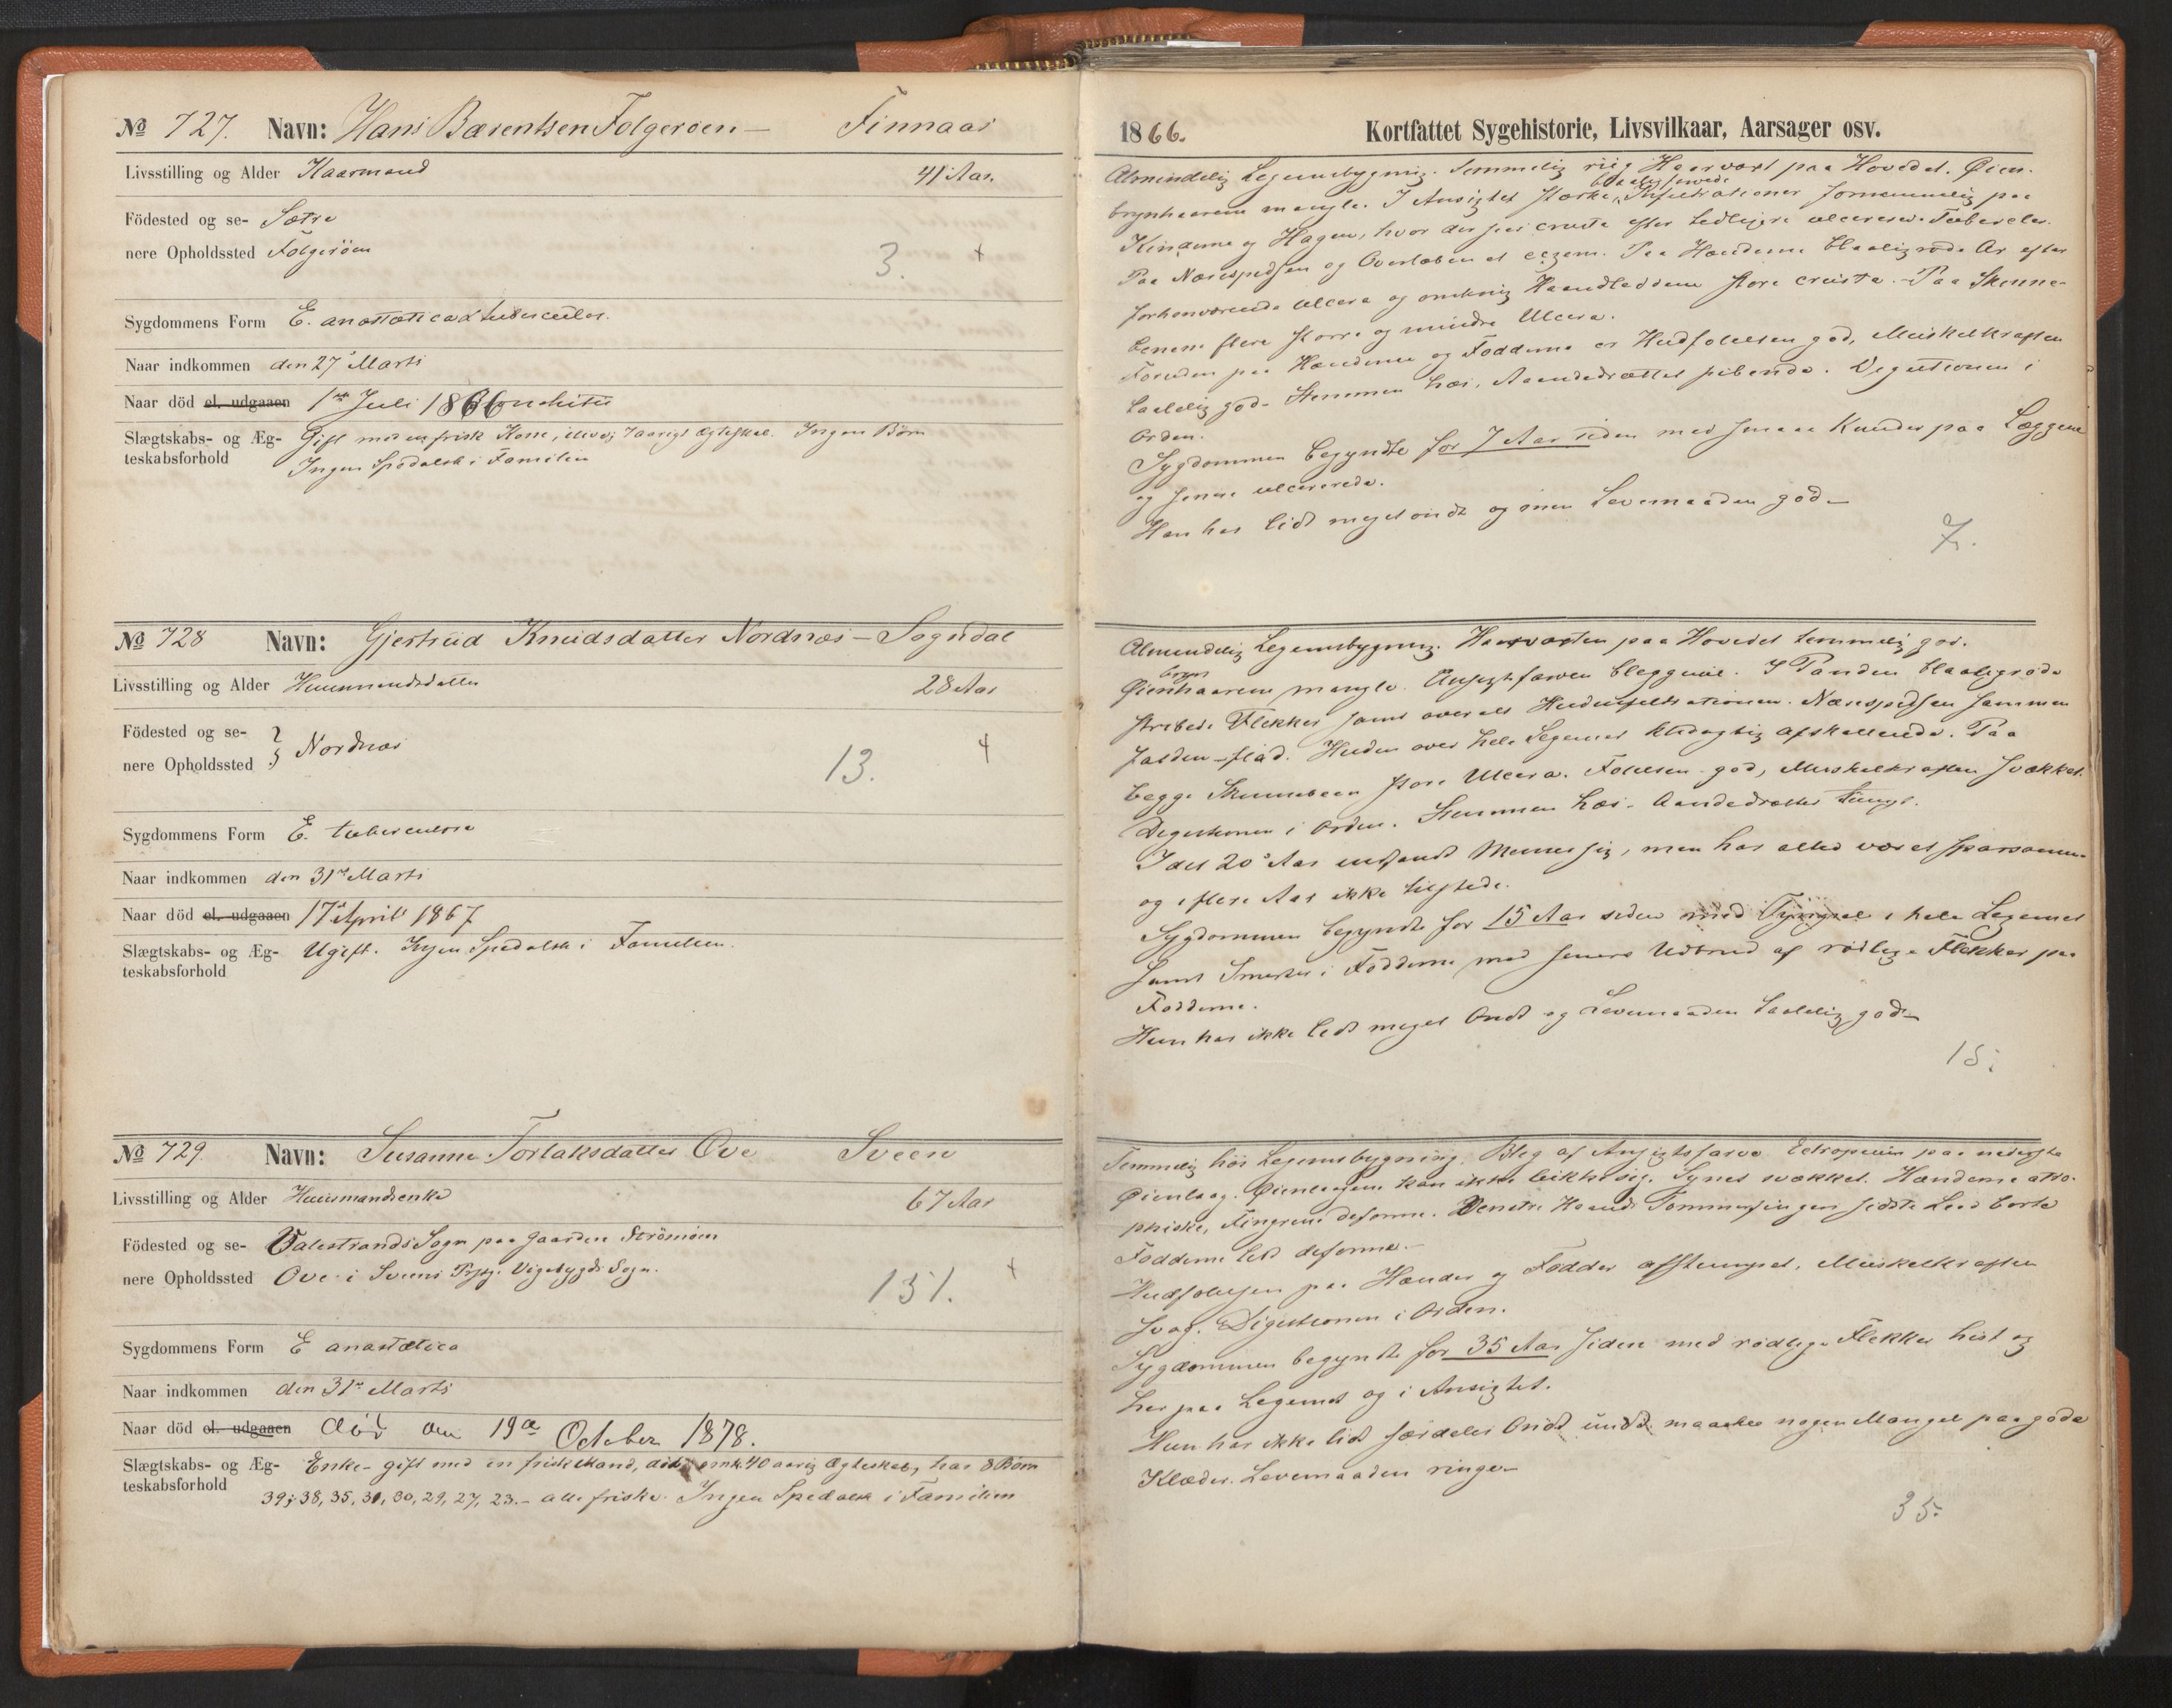 № 727. Navn: Hans Bærentsen Folgeröen — Finnaas
Livsstilling og Alder Kaarmand 41 Aar.
Födested og se- Sætre
nere Opholdssted Folgeröen
3. +
Sygdommens Form E. anæsthetica & tubercules.
Naar indkommen den 27de Marts
Naar död el. udgaaen 1ste Juli 1866 Bronchitis
Slægtskabs- og Æg- Gift med en frisk Kone, i 7 aarigt Ægteskab. Ingen Börn
teskabsforhold Ingen Spedalsk i Familien
№ 728 Navn: Gjertrud Knudsdatter Nordnæs — Sogndal
Livsstilling og Alder Huusmandsdatter 28 Aar
Födested og se-
nere Opholdssted } Nordnæs
13. +
Sygdommens Form E. tuberculosa
Naar indkommen den 31te Marts
Naar död el. udgaaen 17de April 1867
Slægtskabs- og Æg- Ugift. Ingen Spedalsk i Familien.
teskabsforhold
№ 729. Navn: Susanne Torlaksdatter Ove Sveen
Livsstilling og Alder Huusmandsenke 67 Aar
Födested og se- Valestrands Sogn paa Gaarden Strömöen
nere Opholdssted Ove i Sveens Prgj. Vigebygds Sogn.
131. +
Sygdommens Form E anæsthetica
Naar indkommen den 31te Marts
Naar död el. udgaaen död den 19de October 1878.
Slægtskabs- og Æg- Enke - gift med en frisk Mand, omk 40 aarig Ægteskab, har 8 Börn
teskabsforhold 39, 38, 35, 31, 30, 29, 27, 23. - alle friske. Ingen Spedalsk i Familien
1866. Kortfattet Sygehistorie, Livsvilkaar, Aarsager osv.
Almindelig Legemsbygning. Temmelig riig Haarvæxt paa Hovedet. Øien-
brynhaarene mangle. I Ansigtet stærke, blaaligfarvede Infiltrationer fornemmelig paa
Kinderne og Hagen, hvor der sees crusta efter tidligere ulcererede Tubercler.
Paa Næsespidsen og Overlæben et eczem. Paa Hænderne blaaligröde Ar efter
forhenværende Ulcera og omkring Haandleddene store crusta. - Paa Skinne-
benene flere större og mindre Ulcera.
Foruden paa Hænderne og Födderne er Hudfölelsen god, Muskelkraften
taalelig god. Stemmen hæs, Aandedrættet pibende. Digestionen i
Orden.
Sygdommen begyndte for 7 Aar siden med smaa Knuder paa Læggene
og senere ulcererede.
Han har lidt meget ondt og men Levemaaden god —
7.
Almindelig Legemsbygning. Haarvæxten paa Hovedet temmelig god.
Øienbrynhaarene mangle. Ansigtsfarven bleggul. I Panden blaaligröde
stribede Flekker samt overalt Hudinfiltrationer. Næsespidsen sammen
falden - flad. Huden over hele Legemet klidagtig afskallende. Paa
begge Skinneben store Ulcera. Fölelsen god, Muskelkraften svækket.
Digestionen i Orden. Stemmen hæs. Aandedrættet tungt.
I det 20de Aar indfandt Menses sig, men har altid været sparsomme
og i flere Aar ikke tilstede.
Sygdommen begyndte for 15 Aar siden med Tyngsel i hele Legemet
samt Smerter i Födderne med senere Udbrud af rödlige Flekker paa
Födderne.
Hun har ikke lidt meget Ondt og Levemaaden taalelig god —
15.
Temmelig höi Legemsbygning. Bleg af Ansigtsfarve. Ectropium paa nederste
Øienlaag. Øienlaagene kan ikke lukke sig. Synet svækket. Hænderne atro-
phiske, Fingrene deforme. Venstre Haands Tommelfinger sidste Led borte
Födderne lidt deforme. -
Hudfölelsen paa Hænder og Födder afstumpet, Muskelkraften
svag. Digestionen i Orden.
Sygdommen begyndte for 35 Aar siden med rödlige Flekker hist og
her paa Legemet og i Ansigtet.
Hun har ikke lidt særdeles Ondt undt. maaskee nogen Mangel paa gode
Klæder. Levemaaden ringe —
35.